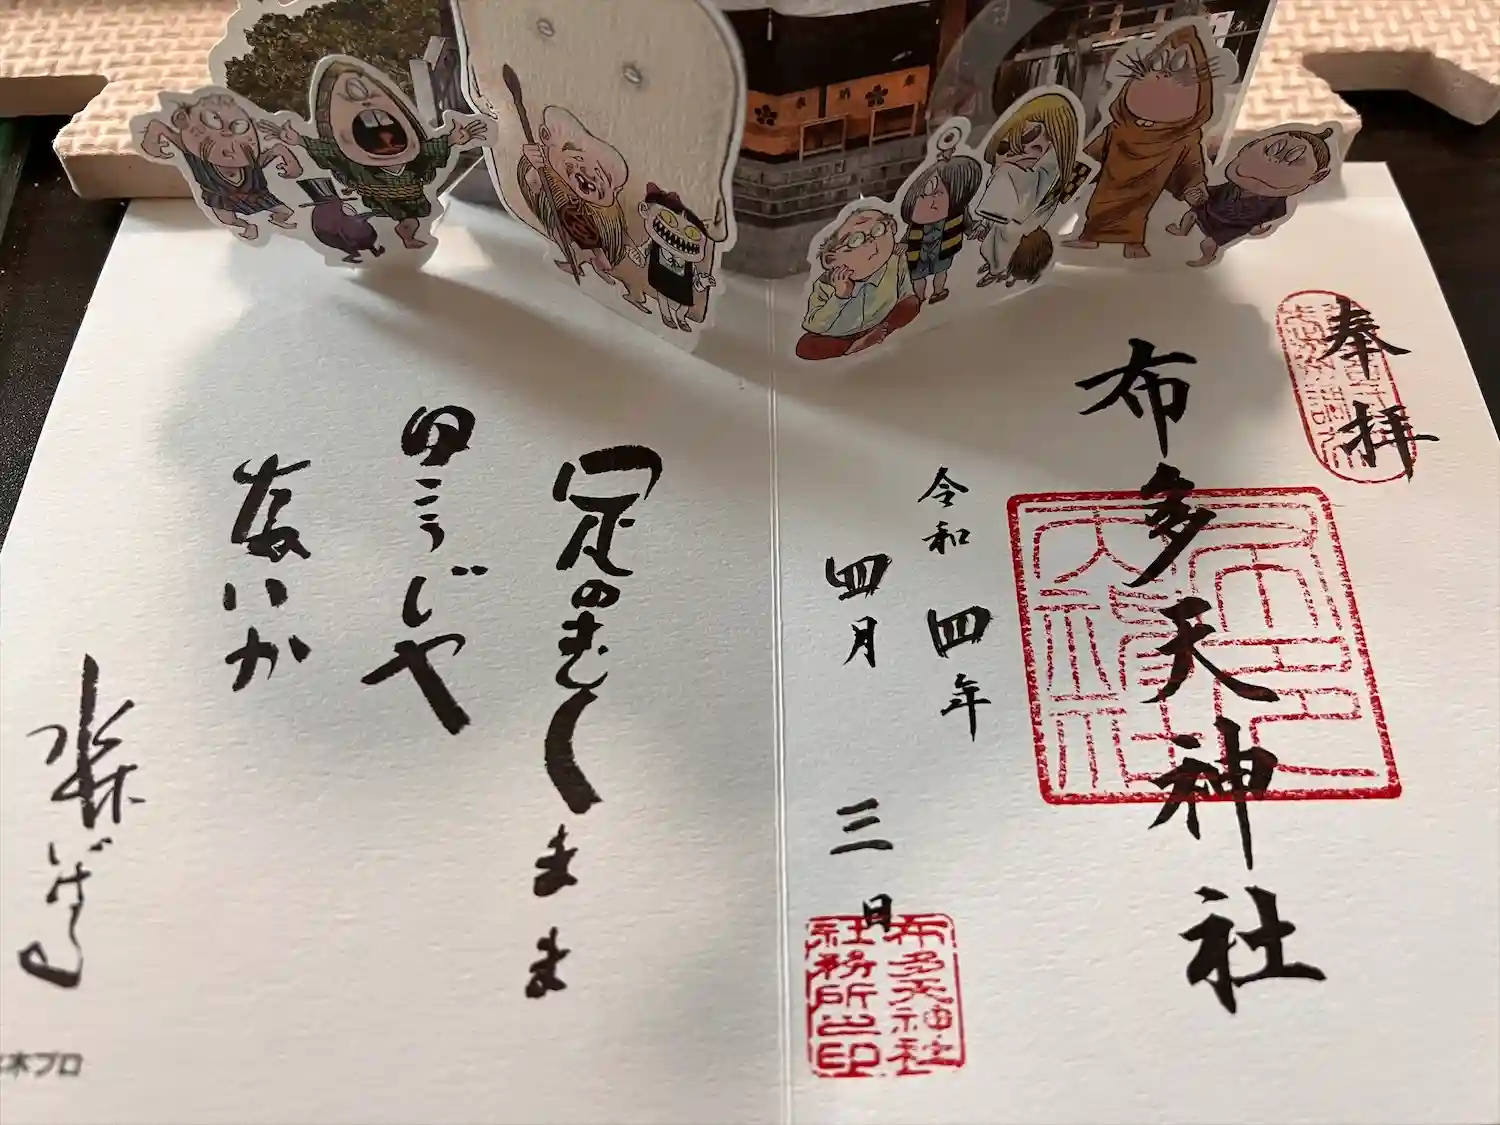 奉拝
布多天神社
令和四年
四月三日
布多天神社
社務所之印
足のむくまま
ゆこうじや
ないか
水木しげる
木プロ